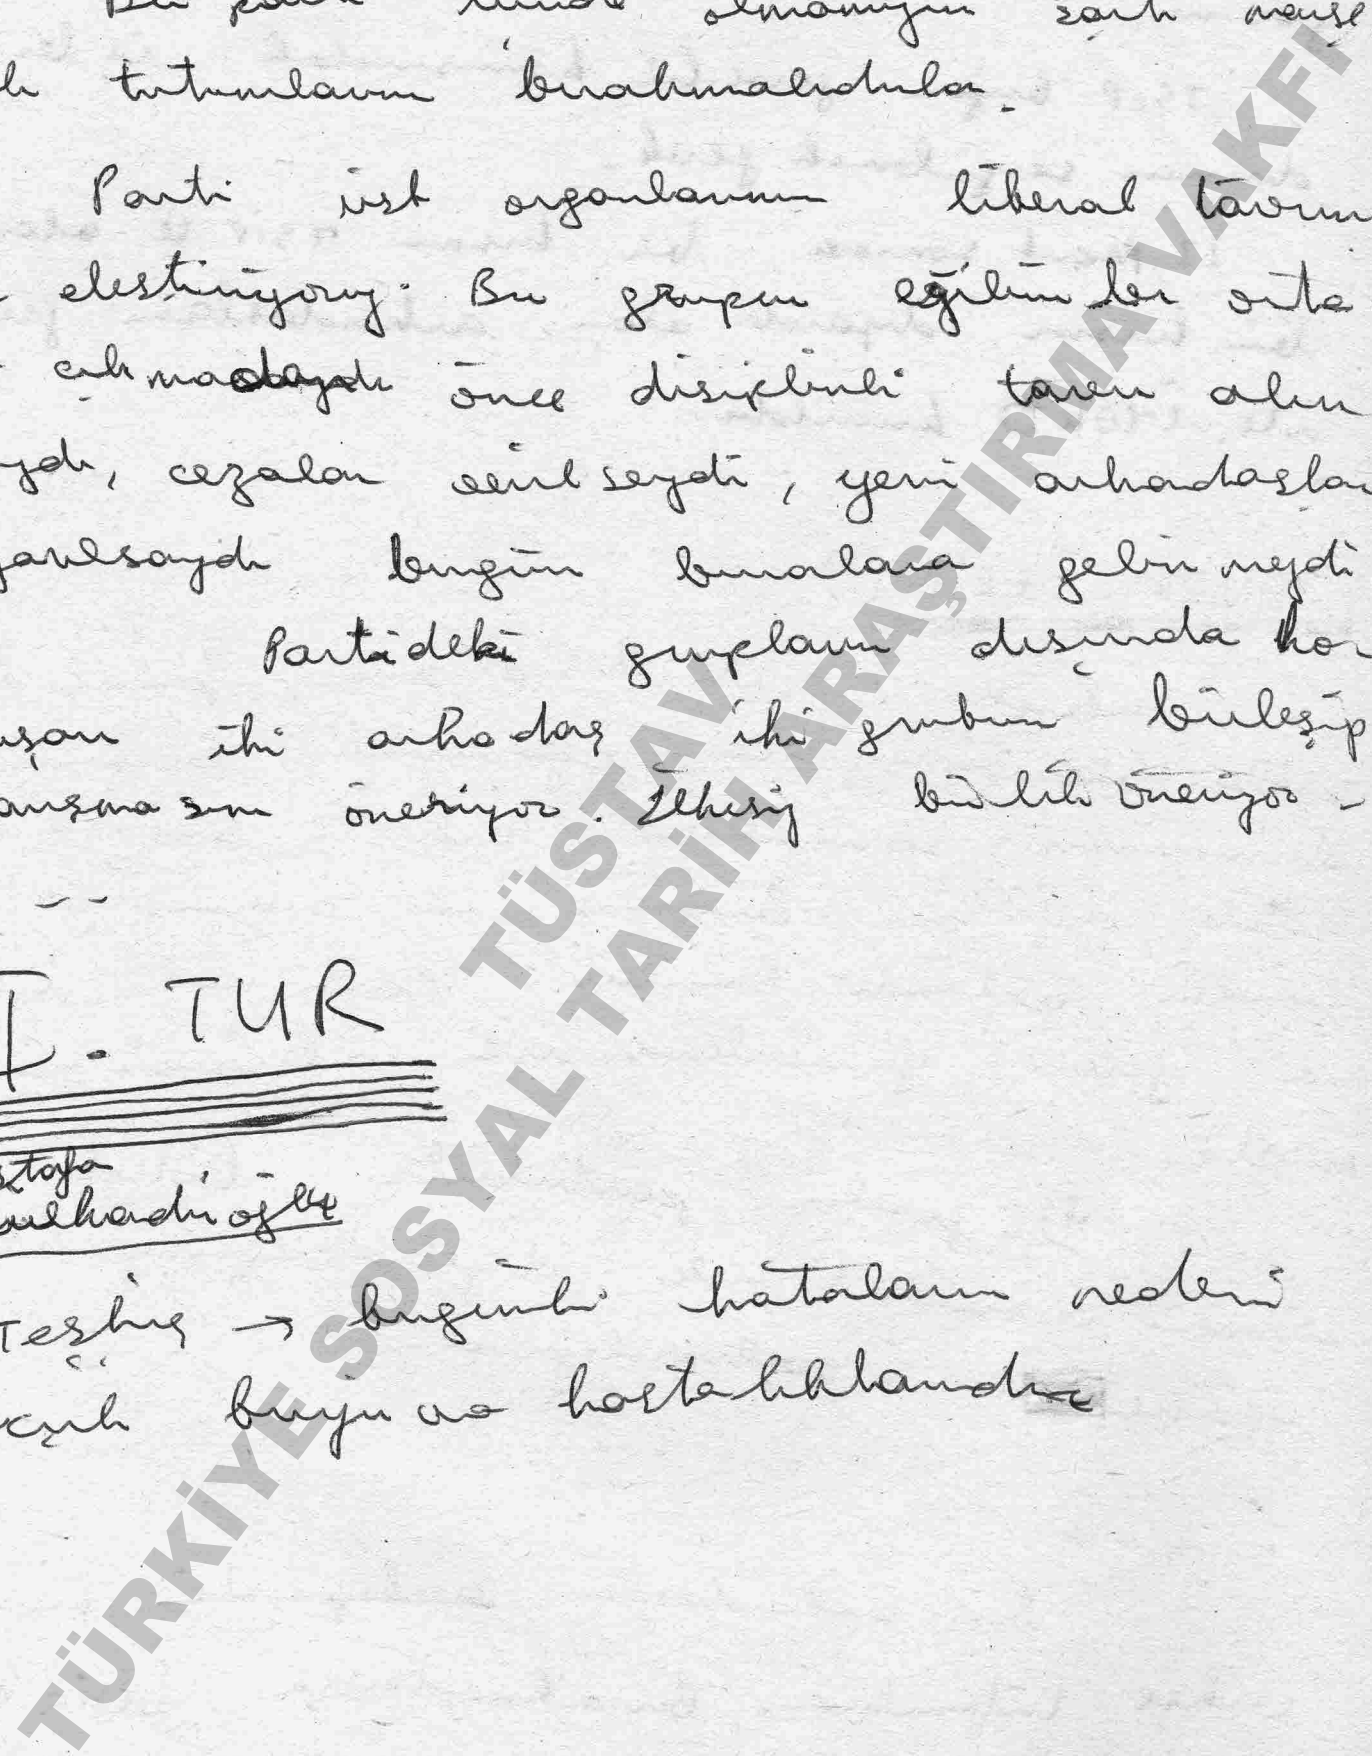 tutumlarını bırakmalıdırlar.
Parti üst organlarının liberal tavrını
eleştiriyoruz. Bu grupçu eğilimler orta
çıkmadan önce disiplinli tavır alın
ydı, cezalar verilseydi, yeni arkadaşlar
bugün buralara gelinmeydi
Partideki grupların dışında ko
uşan iki arkadaş iki grubun birleşip
öneriyor. İlkesiz birlik öneriyor -
I. TUR
ustafa
ulkadiroğlu
Teşhis → bugünkü hataların nedeni
burjuva hastalıklarıdır
TÜSTAV
TÜRKİYE SOSYAL TARİH ARAŞTIRMA VAKFI